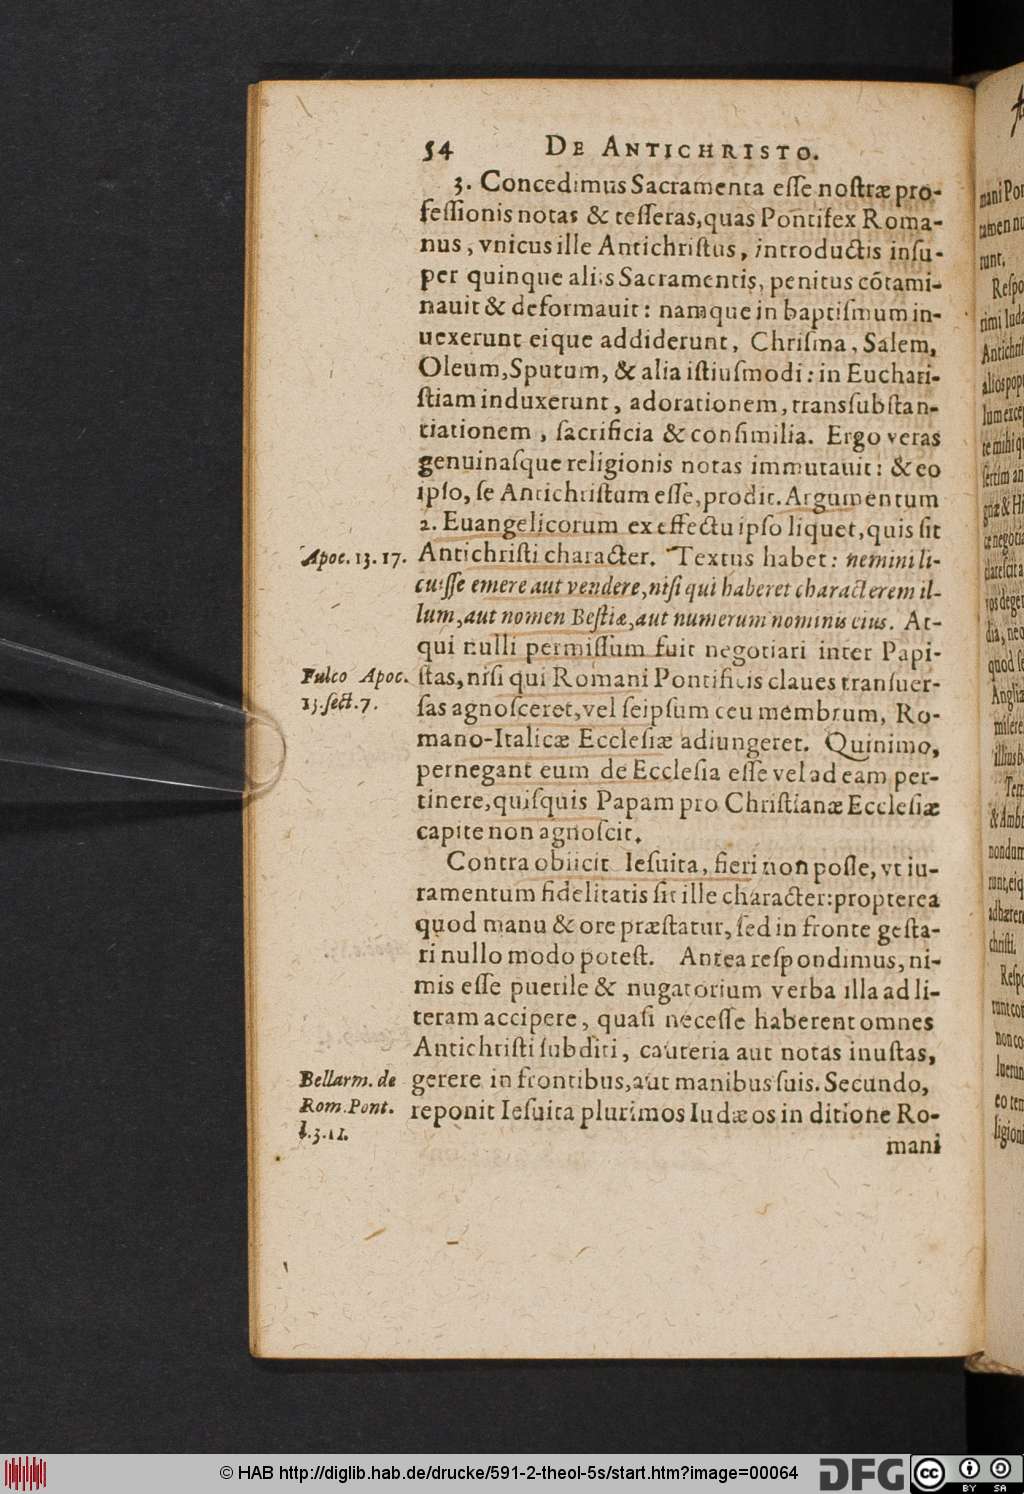 54 DE ANTICHRISTO.
3. Concedimus Sacramenta eſſe noſtræ pro-
feſſionis notas & teſſeras, quas Pontifex Roma-
nus, vnicus ille Antichriſtus, introductis inſu-
per quinque aliis Sacramentis, penitus cõtami-
nauit & deformauit: namque in baptiſmum in-
uexerunt eique addiderunt, Chriſma, Salem,
Oleum, Sputum, & alia iſtiuſmodi: in Euchari-
ſtiam induxerunt, adorationem, tranſubſtan-
tiationem, ſacrificia & conſimilia. Ergo veras
genuinaſque religionis notas immutauit: & eo
ipſo, ſe Antichriſtum eſſe, prodit. Argumentum
2. Euangelicorum ex effectu ipſo liquet, quis ſit
Apoc. 13. 17. Antichriſti character. Textus habet: nemini li-
cuiſſe emere aut vendere, niſi qui haberet characterem il-
lum, aut nomen Beſtiæ, aut numerum nominis eius. At-
qui nulli permiſſum fuit negotiari inter Papi-
Fulco Apoc. ſtas, niſi qui Romani Pontificis claues tranſuer-
13. ſect. 7. ſas agnoſceret, vel ſeipſum ceu membrum, Ro-
mano-Italicæ Eccleſiæ adiungeret. Quinimo,
pernegant eum de Eccleſia eſſe vel ad eam per-
tinere, quiſquis Papam pro Chriſtianæ Eccleſiæ
capite non agnoſcit.
Contra obiicit Ieſuita, fieri non poſſe, vt iu-
ramentum fidelitatis ſit ille character: propterea
quod manu & ore præſtatur, ſed in fronte geſta-
ri nullo modo poteſt. Antea reſpondimus, ni-
mis eſſe puerile & nugatorium verba illa ad li-
teram accipere, quaſi neceſſe haberent omnes
Antichriſti ſubditi, cauteria aut notas inuſtas,
Bellarm. de gerere in frontibus, aut manibus ſuis. Secundo,
Rom. Pont. reponit Ieſuita plurimos Iudæos in ditione Ro-
l. 3. 11.
mani
© HAB http://diglib.hab.de/drucke/591-2-theol-5s/start.htm?image=00064
DFG
cc BY SA